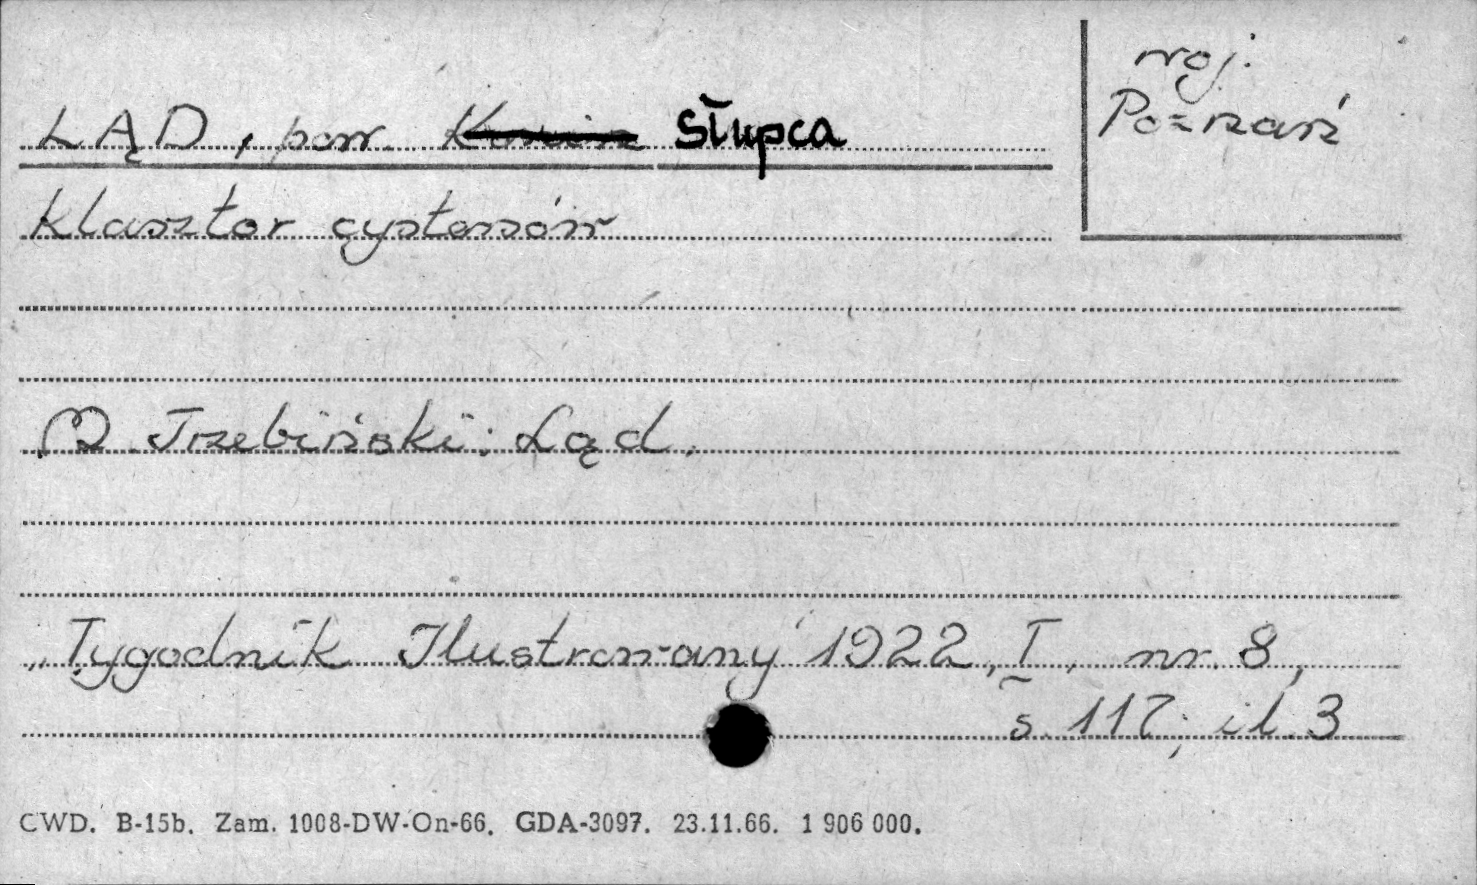 woj.
Poznań
LĄD, pow. Konin Słupca
Klasztor cystersów
M Trzebiński: Ląd.
„Tygodnik Ilustrowany" 1922, I, nr. 8,
s. 117; il. 3
CWD. B-15b. Zam. 1008-DW-On-66. GDA-3097. 23.11.66. 1 906 000.